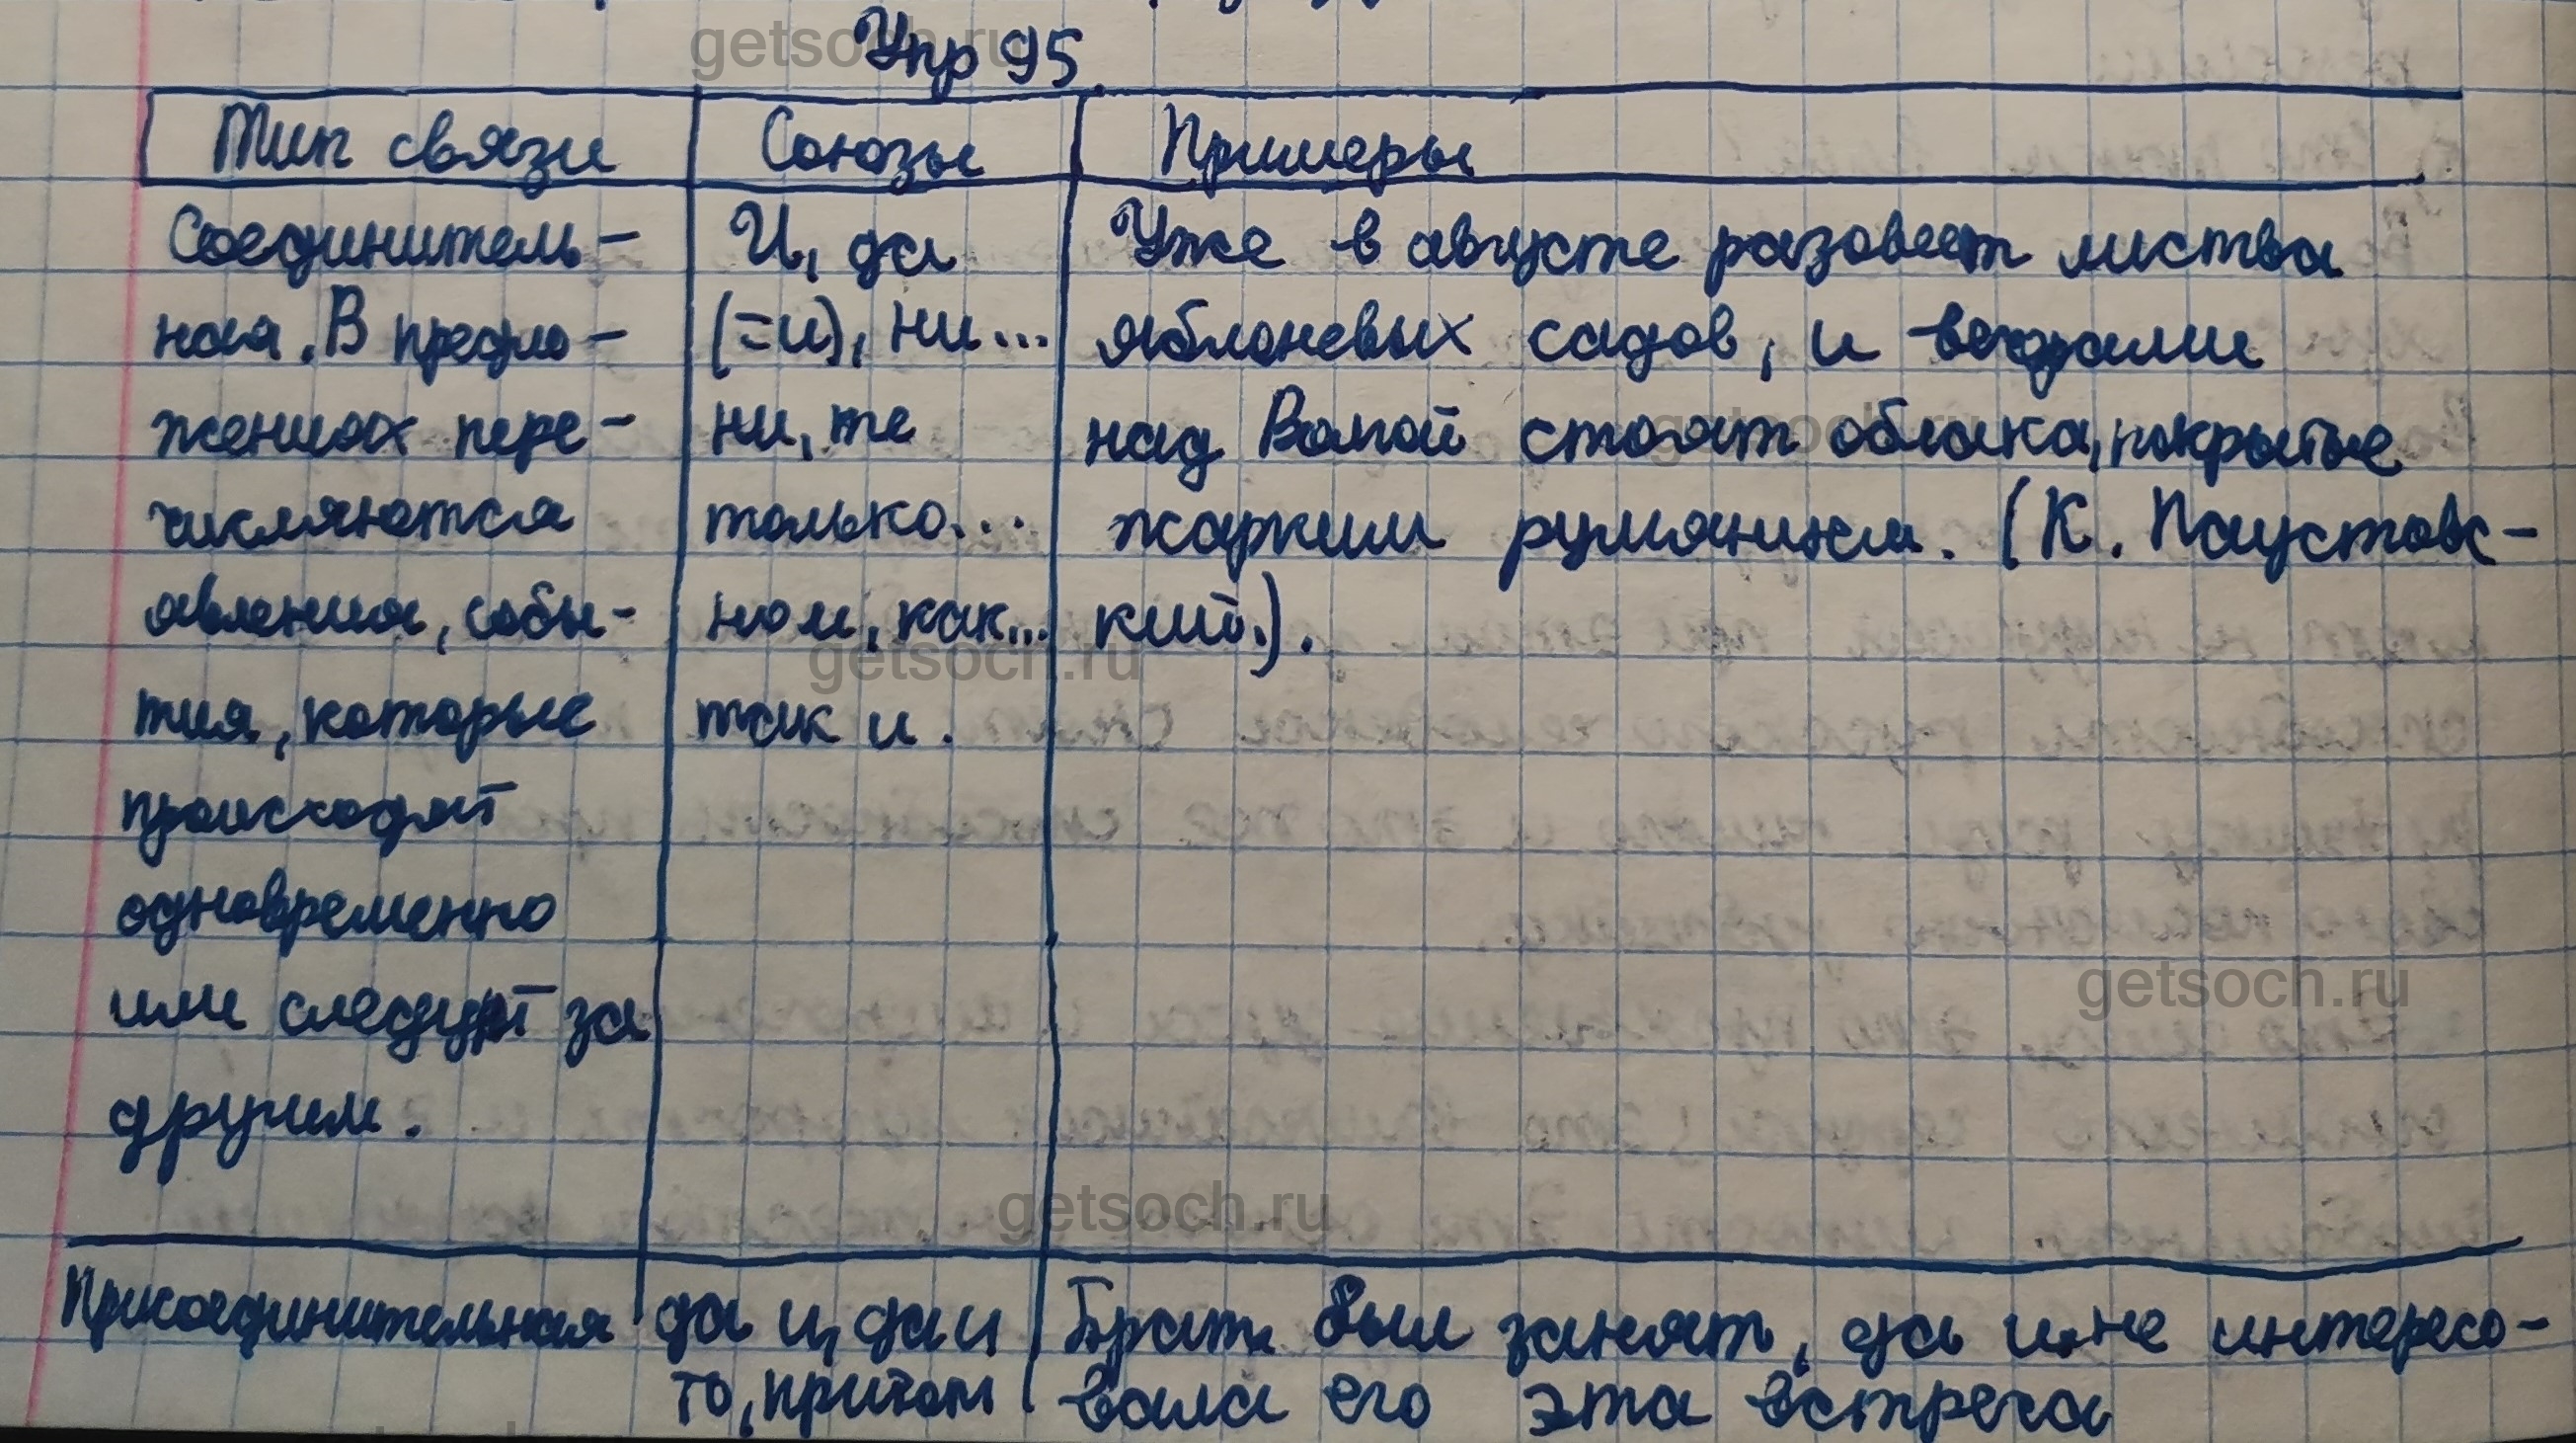 Упр 95
Тип связи Союзы Примеры
Соединитель-
ная. В предло-
жениях пере-
числяются
явления, собы-
тия, которые
происходят
одновременно
или следует за
другим.
И, да
(=и), ни...
ни, не
только...
но и, как...
так и.
Уже в августе розовеет листва
яблоневых садов, и вечерами
над Волгой стоят облака, покрытые
жарким румянцем. (К. Паустовс-
кий.).
Присоединительная
да и, да и
то, притом
Брат был занят, да и не интересо-
вала его эта встреча
getsoch.ru
getsoch.ru
getsoch.ru
getsoch.ru
getsoch.ru